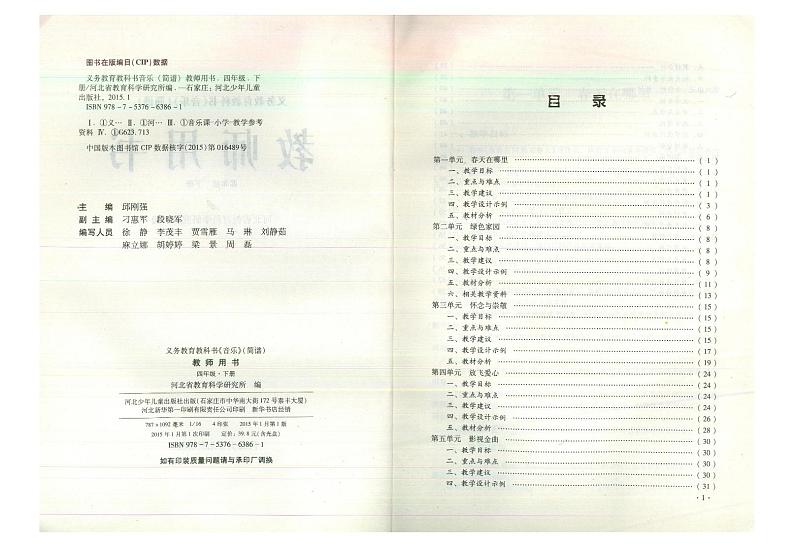 图书在版编目(CIP)数据
义务教育教科书音乐(简谱)教师用书.四年级.下
册/河北省教育科学研究所编.—石家庄:河北少年儿童
出版社,2015.1
ISBN 978-7-5376-6386-1
Ⅰ.①义… Ⅱ.①河… Ⅲ.①音乐课-小学-教学参考
资料 Ⅳ.①G623.713
中国版本图书馆CIP数据核字(2015)第016489号
主 编 邱刚强
副主编 刁惠军 段晓军
编写人员 徐 静 李茂丰 贾雪雁 马 琳 刘静茹
麻立娜 胡婷婷 梁 景 周 磊
义务教育教科书《音乐》(简谱)
教 师 用 书
四年级·下册
河北省教育科学研究所 编
河北少年儿童出版社出版(石家庄市中华南大街172号泰丰大厦)
河北新华第一印刷有限责任公司印刷 新华书店经销
787×1092毫米 1/16 4印张 2015年1月第1版
2015年1月第1次印刷 定价:39.8元(含光盘)
ISBN 978-7-5376-6386-1
如有印装质量问题请与承印厂调换
目 录
第一单元 春天在哪里 (1)
一、教学目标 (1)
二、重点与难点 (1)
三、教学建议 (1)
四、教学设计示例 (3)
五、教材分析 (6)
第二单元 绿色家园 (8)
一、教学目标 (8)
二、重点与难点 (8)
三、教学建议 (8)
四、教学设计示例 (9)
五、教材分析 (11)
六、相关教学资料 (13)
第三单元 怀念与崇敬 (15)
一、教学目标 (15)
二、重点与难点 (15)
三、教学建议 (15)
四、教学设计示例 (17)
五、教材分析 (19)
第四单元 放飞爱心 (24)
一、教学目标 (24)
二、重点与难点 (24)
三、教学建议 (24)
四、教学设计示例 (26)
五、教材分析 (28)
第五单元 影视金曲 (30)
一、教学目标 (30)
二、重点与难点 (30)
三、教学建议 (30)
四、教学设计示例 (31)
·1·